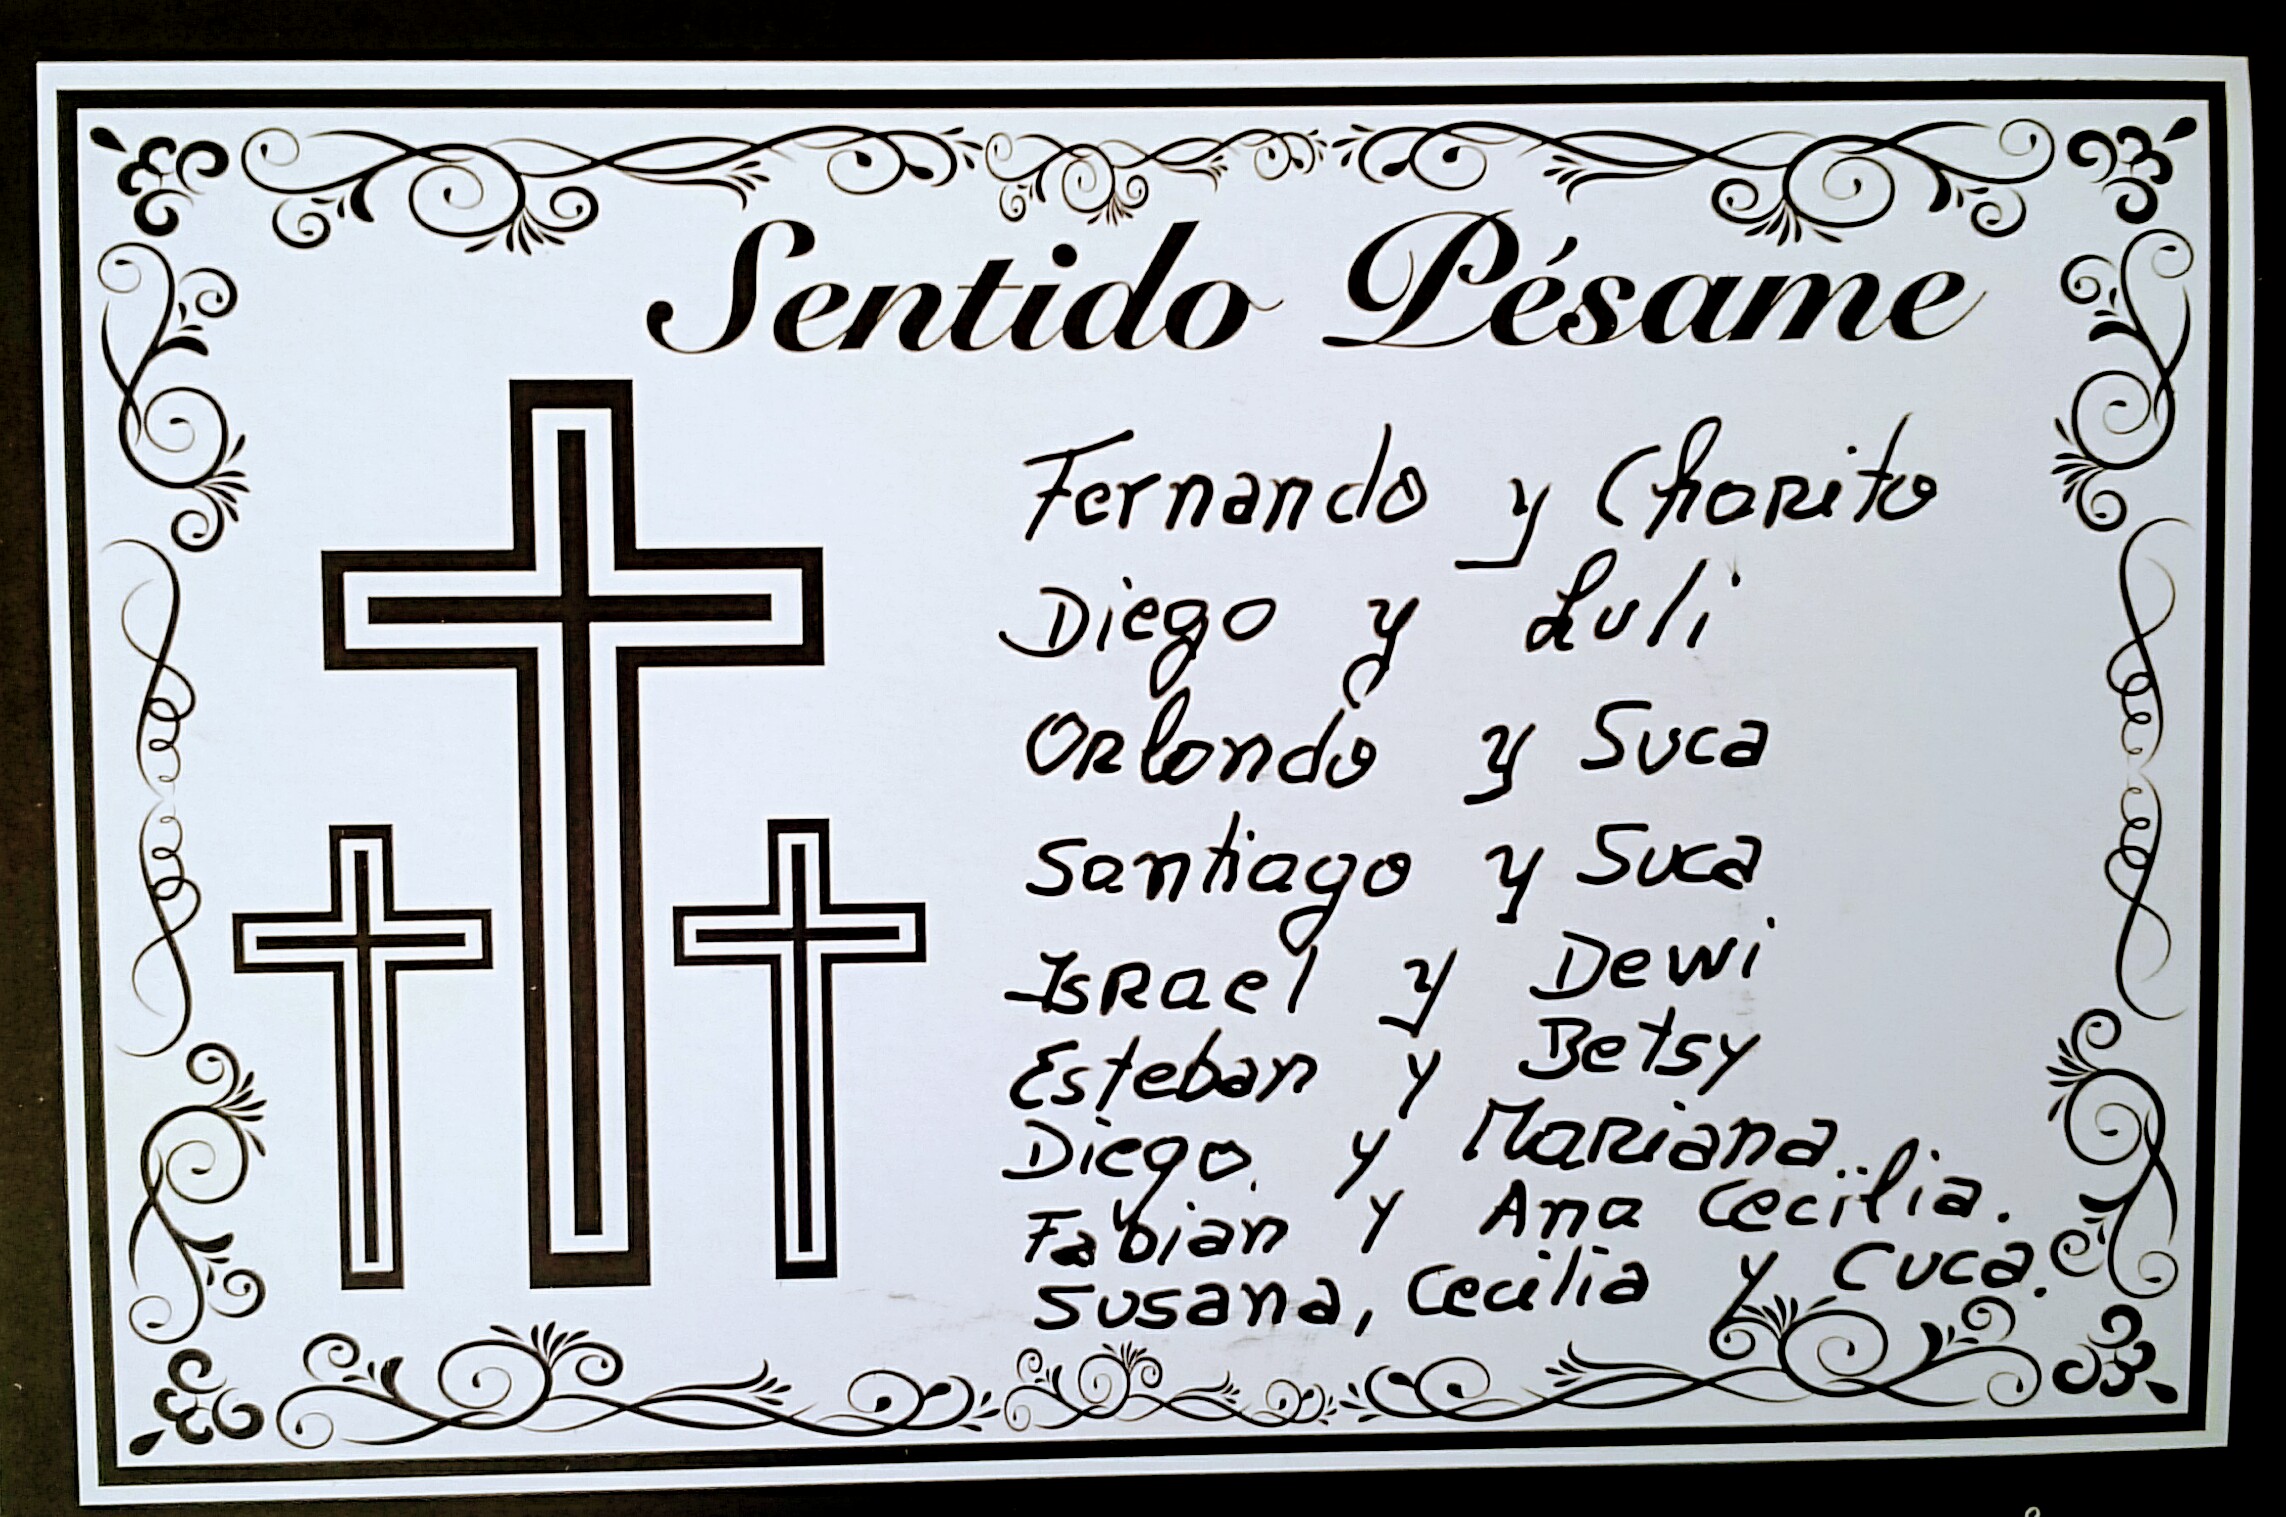 Sentido Pésame
Fernando y Charito
Diego y Luli
Orlando y Suca
Santiago y Suca
Israel y Dewi
Esteban y Betsy
Diego. y Mariana..
Fabian y Ana Cecilia.
Susana, Cecilia y Cuca.